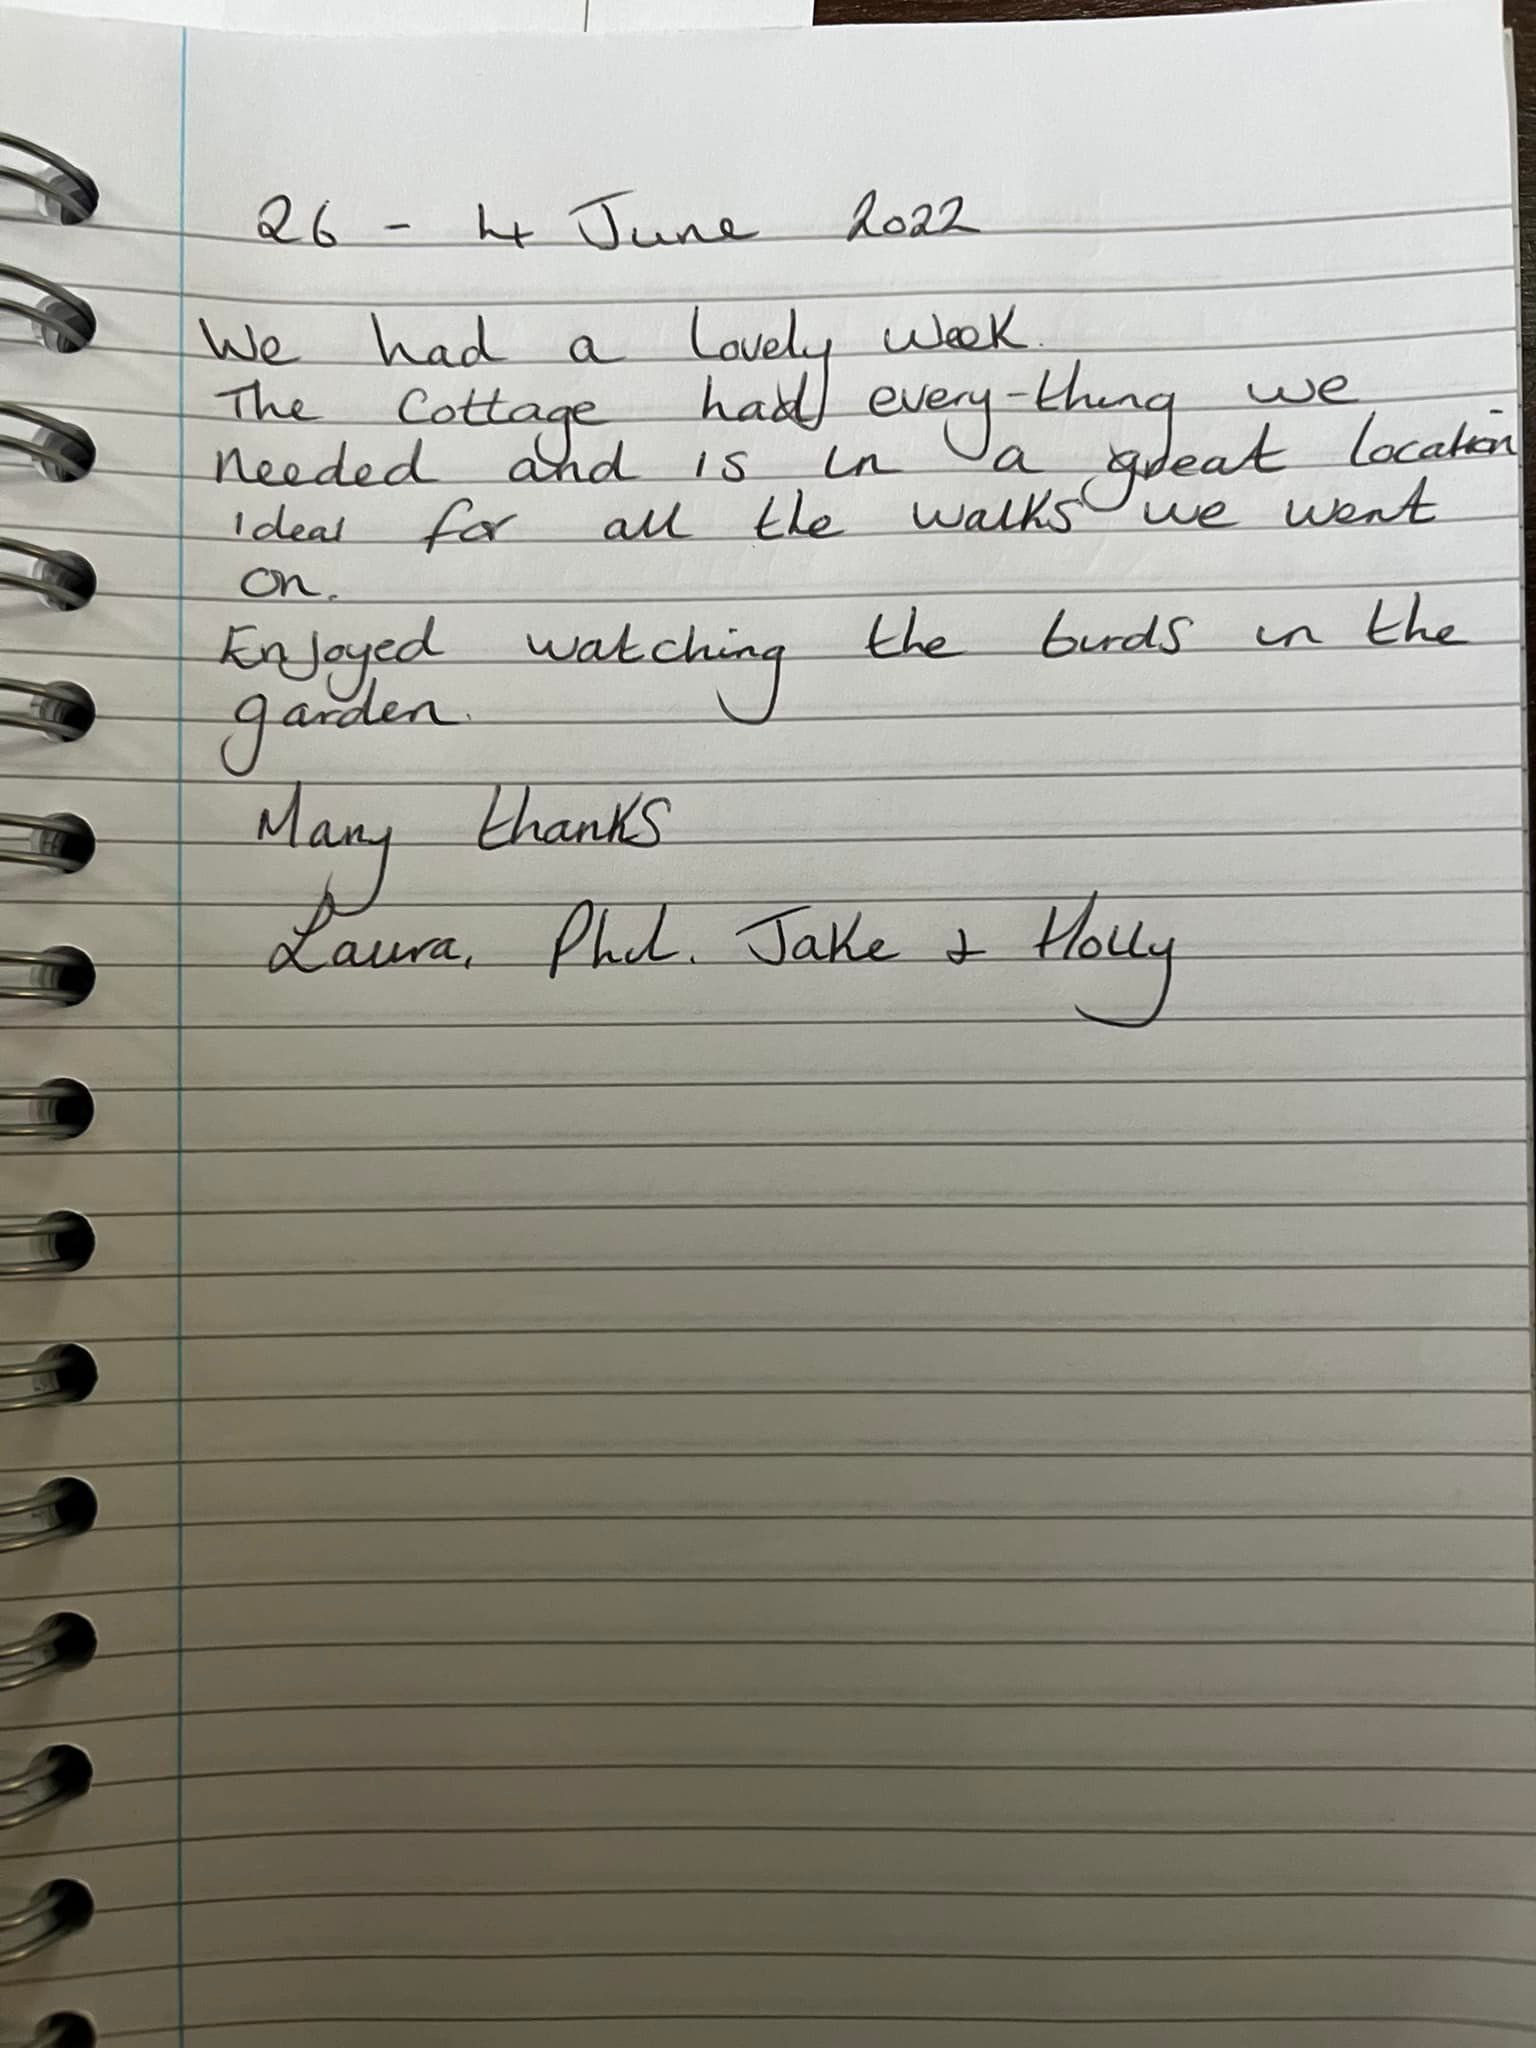 26 - 4 June 2022
We had a lovely week.
The Cottage had every-thing we
needed and is in a great location
ideal for all the walks we went
on.
Enjoyed watching the birds in the
garden.
Many thanks
Laura, Phil. Jake & Holly